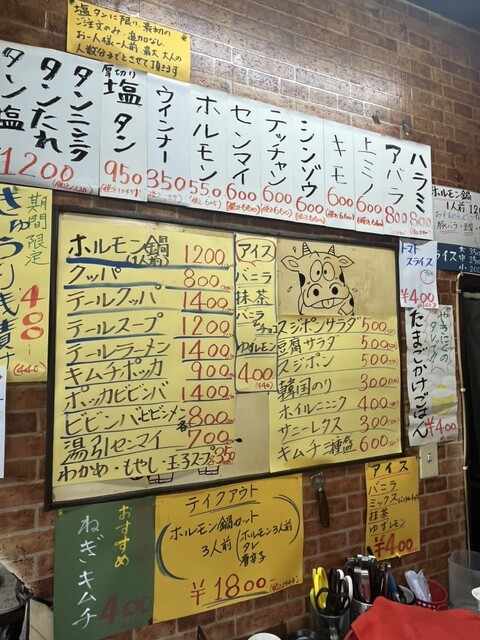 塩タンに限り、最初の
ご注文のみ、追加なし、
お一人様一人前、最大、大人の
人数分までとさせて頂きます
ハラミ 800
アバラ 800
上ミノ 600
キモ 600
シンゾウ 600
テッチャン 600
センマイ 600
ホルモン 550
ウインナー 350
厚切り塩タン 950
タンニンニク
タンたれ
タン塩
1200
期間限定
きゅうり浅漬け
400
(440)
ホルモン鍋(1人前) 1200
クッパ 800
テールクッパ 1400
テールスープ 1200
テールラーメン 1400
キムチポッカ 900
ポッカビビンバ 1400
ビビンバ・ビビンメン 各800
湯引センマイ 700
わかめ・もやし・玉子スープ 350
アイス
バニラ
抹茶
バニラチョコ
ゆずレモン
400
(440)
スジポンサラダ 500
豆腐サラダ 500
スジポン 500
韓国のり 300
ホイルニンニク 400
サニーレタス 300
キムチ三種盛 600
トマトスライス
¥400
やきにくのタレで
たまごかけごはん
¥400
ホルモン鍋
1人前
ライス
おすすめ
ねぎキムチ
400
テイクアウト
ホルモン鍋セット
3人前
ホルモン3人前
タレ
唐辛子
¥1800
アイス
バニラ
ミックス
抹茶
ゆずレモン
¥400